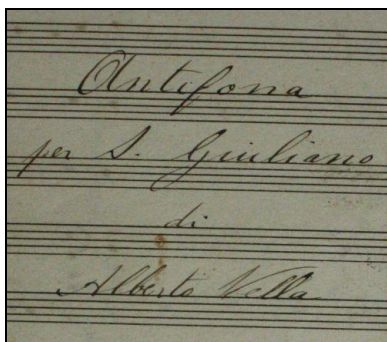 Antifona
per S. Giuliano
di
Alberto Vella